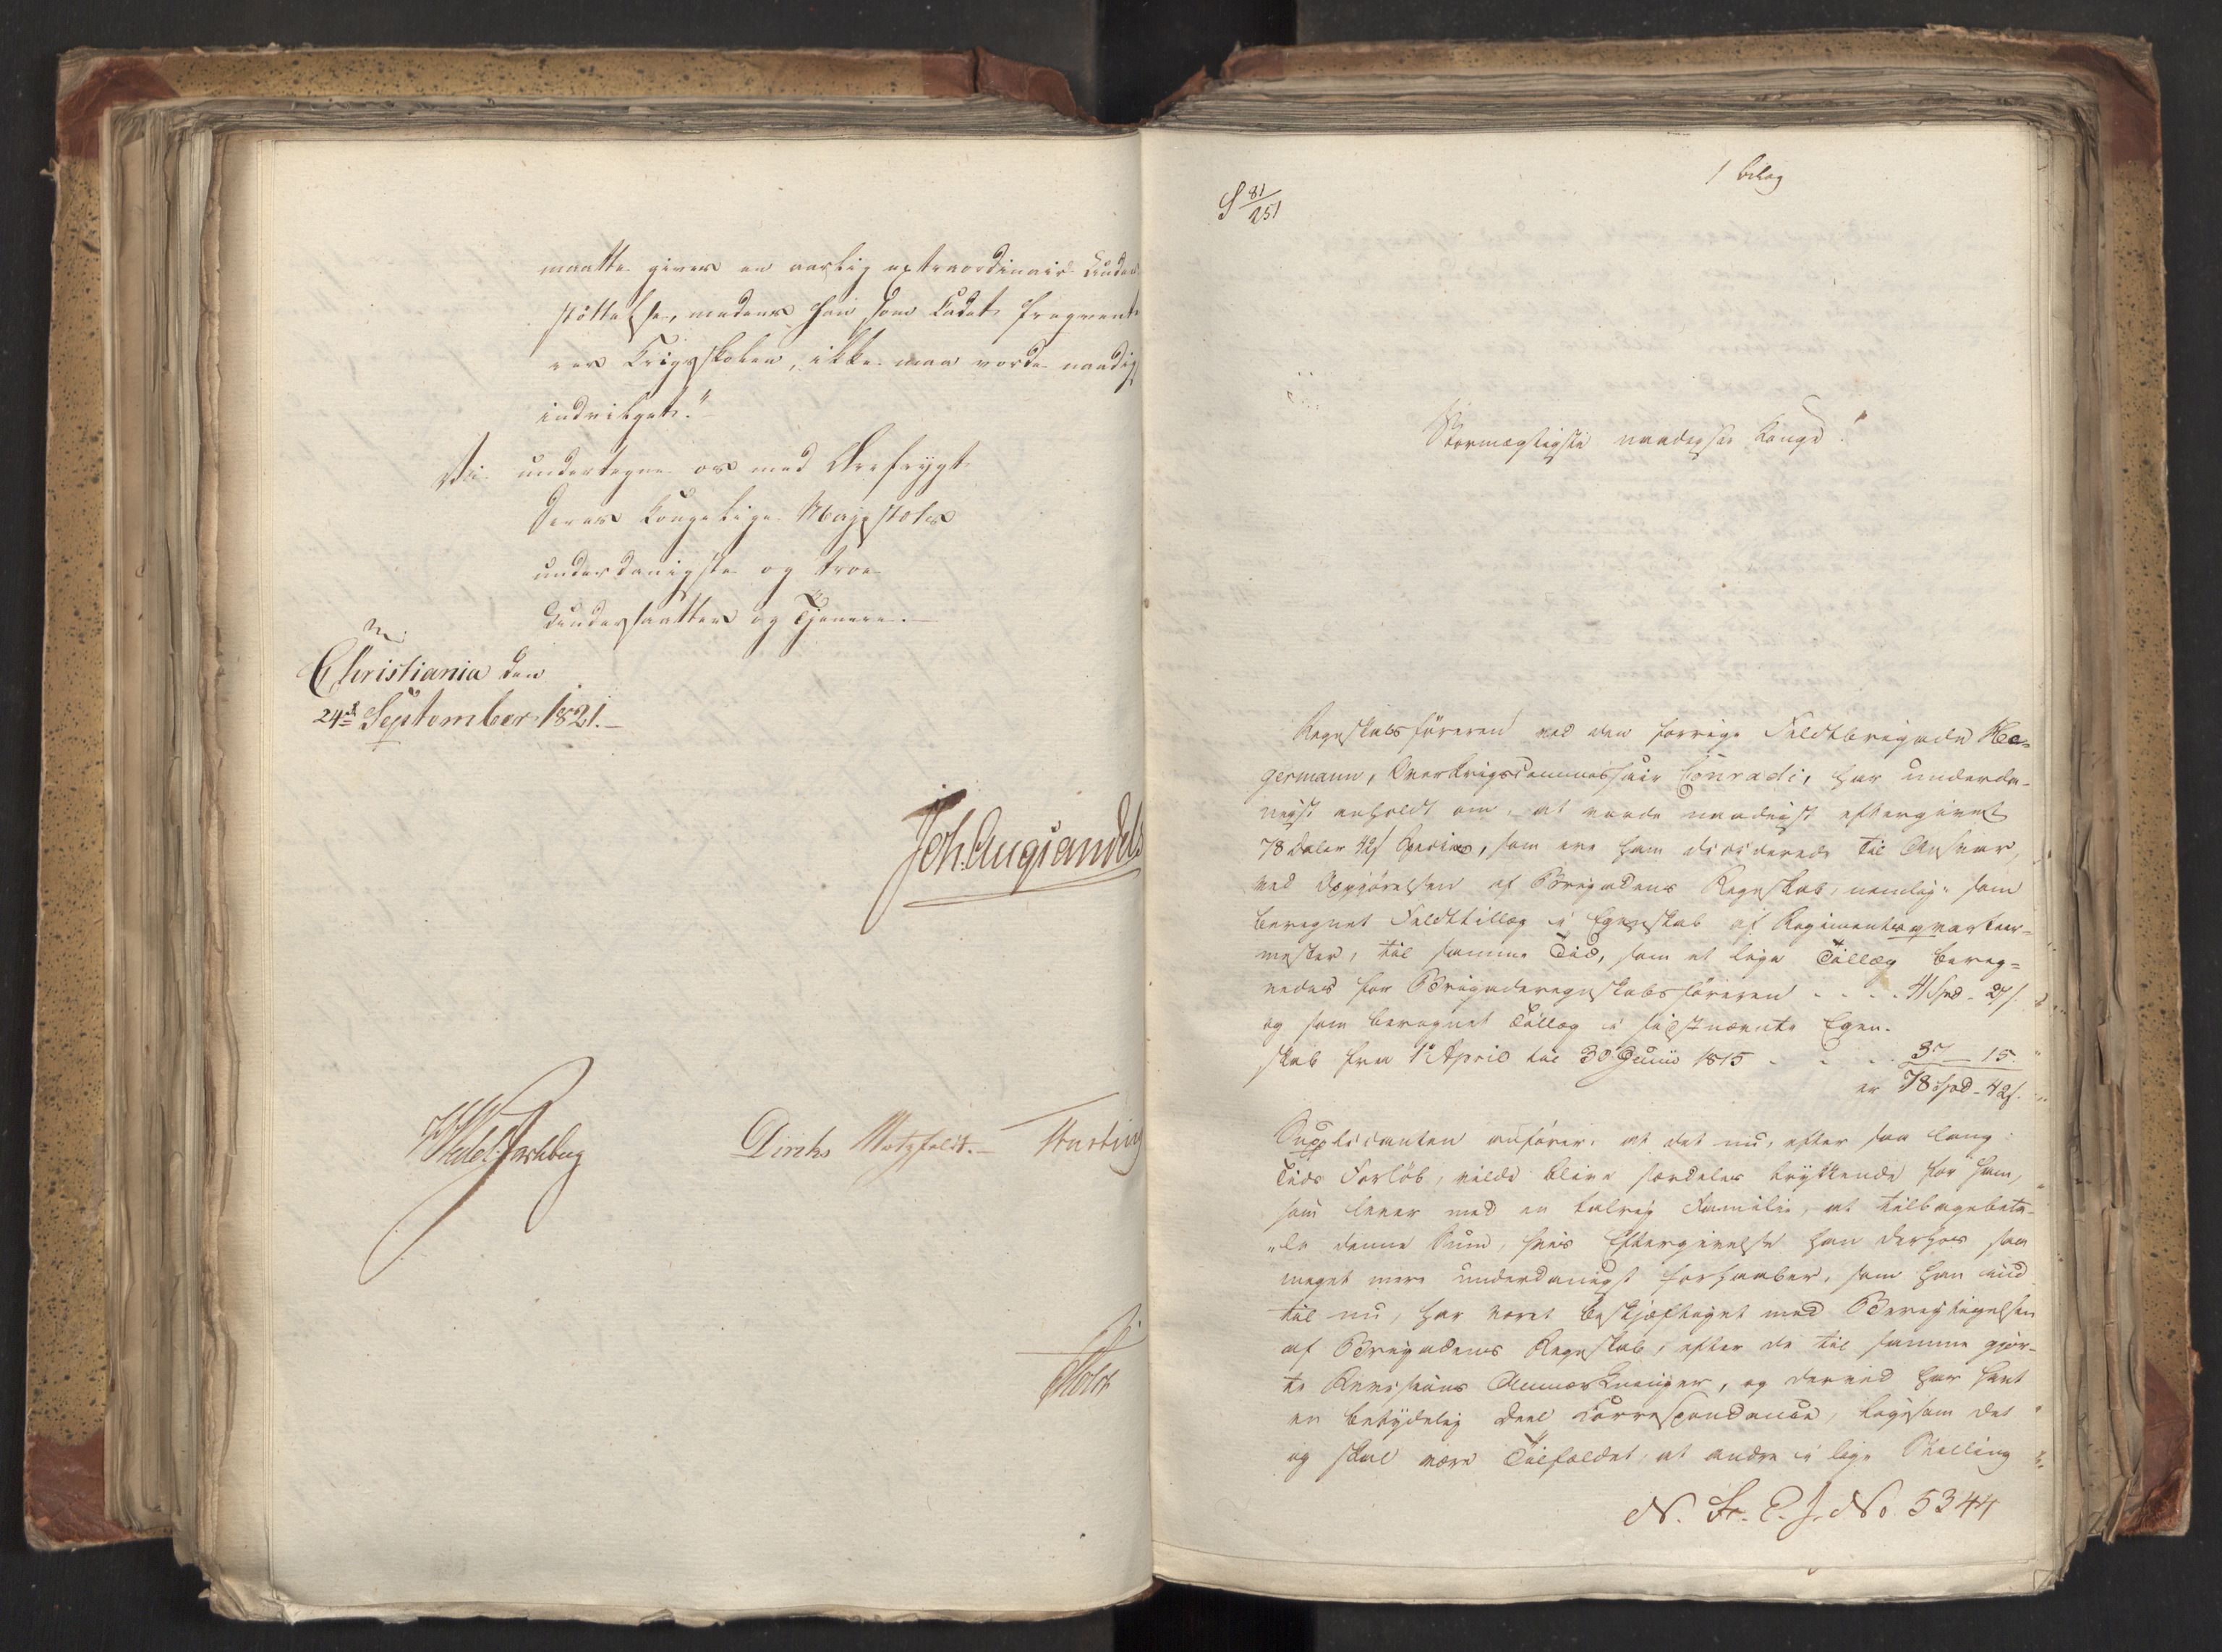 maatte gives en aarlig extraordinair Under
støttelse, medens han som Cadet frequente
rer Krigsskolen, ikke maa vorde naadigst
indvilget."
Vi undertegne os med Ærefrygt
Deres Kongelige Majestæts
underdanigste og troe
Undersaatter og Tjenere.
Christiania den
24de September 1821.
Joh. Aug Sandels
Wedel Jarlsberg Diriks Motzfeldt. Krebting
Holst
1 bilag
S 81/251
Stormægtigste naadigste Konge!
Regnskabsföreren ved den forrige Feldtbrigade He-
germann, Overkrigscommissair Conradi, har underda-
nigst anholdt om, at vorde naadigst eftergivet
78 Daler 42 s Species, som ere ham decideret til Ansvar,
ved Opgjörelsen af Brigadens Regnskab, nemlig: som
beregnet Feldttillæg i Egenskab af Regimentsqvarteer-
mester, til samme Tid, som et lige Tillæg bereg-
nedes for Brigaderegnskabsföreren . . . . 41 Spd - 27 s.
og som beregnet Tillæg i sidstnævnte Egen-
skab fra 1 April til 30 Junii 1815 - - . . 37 — 15.
er 78 Spd - 42 s.
Supplicanten anfører, at det nu, efter saa lang
Tids Forløb, vilde blive særdeles trykkende for ham,
som lever med en talrig Familie, at tilbagebeta-
le denne Sum, hvis Eftergivelse han derhos saa
meget mere underdanigst forhaaber, som han ind
til nu, har været beskjæftiget med Berigtigelsen
af Brigadens Regnskab, efter de til samme gjor-
te Revisions Anmærkninger, og derved har havt
en betydelig Deel Correspondance, ligesom det
og skal være Tilfældet, at andre i lige Stilling
N. St. E. J. No 5344